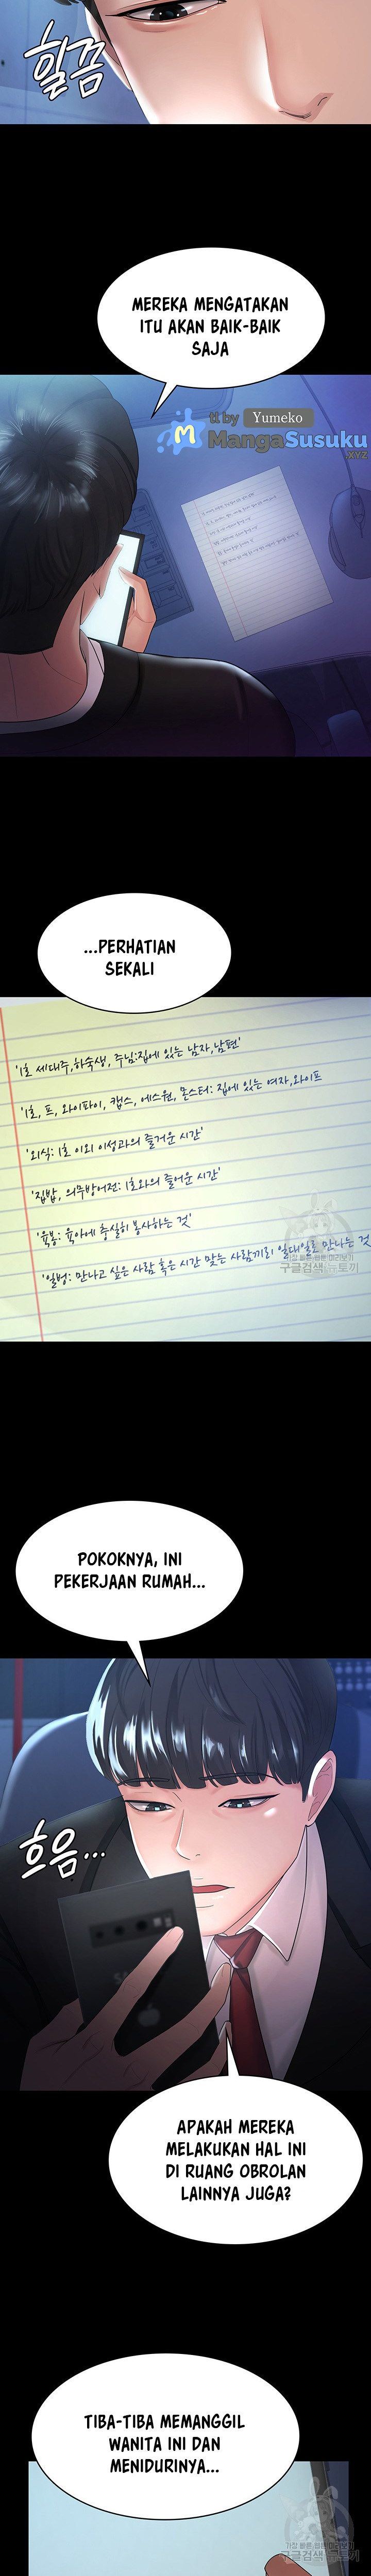 힐끔
MEREKA MENGATAKAN
ITU AKAN BAIK-BAIK
SAJA
tl by Yumeko
M MangaSusuku
.XYZ
...PERHATIAN
SEKALI
'1호 세대주,하숙생, 주님:집에 있는 남자,남편'
'1호, 프, 와이파이, 캡스, 에스원, 몬스터: 집에 있는 여자,와이프
'외식: 1호 이외 이성과의 즐거운 시간'
'집밥, 의무방어전: 1호와의 즐거운 시간'
'육봉: 육아에 충실히 봉사하는 것'
'일벙: 만나고 싶은 사람 혹은 시간 맞는 사람끼리 일대일로 만나는 것
가장 빠른 웹툰 미리보기
구글검색 뉴토끼
POKOKNYA, INI
PEKERJAAN RUMAH...
흐음...
APAKAH MEREKA
MELAKUKAN HAL INI
DI RUANG OBROLAN
LAINNYA JUGA?
TIBA-TIBA MEMANGGIL
WANITA INI DAN
MENIDURINYA...
가장 빠른 웹툰 미리보기
구글검색 뉴토끼